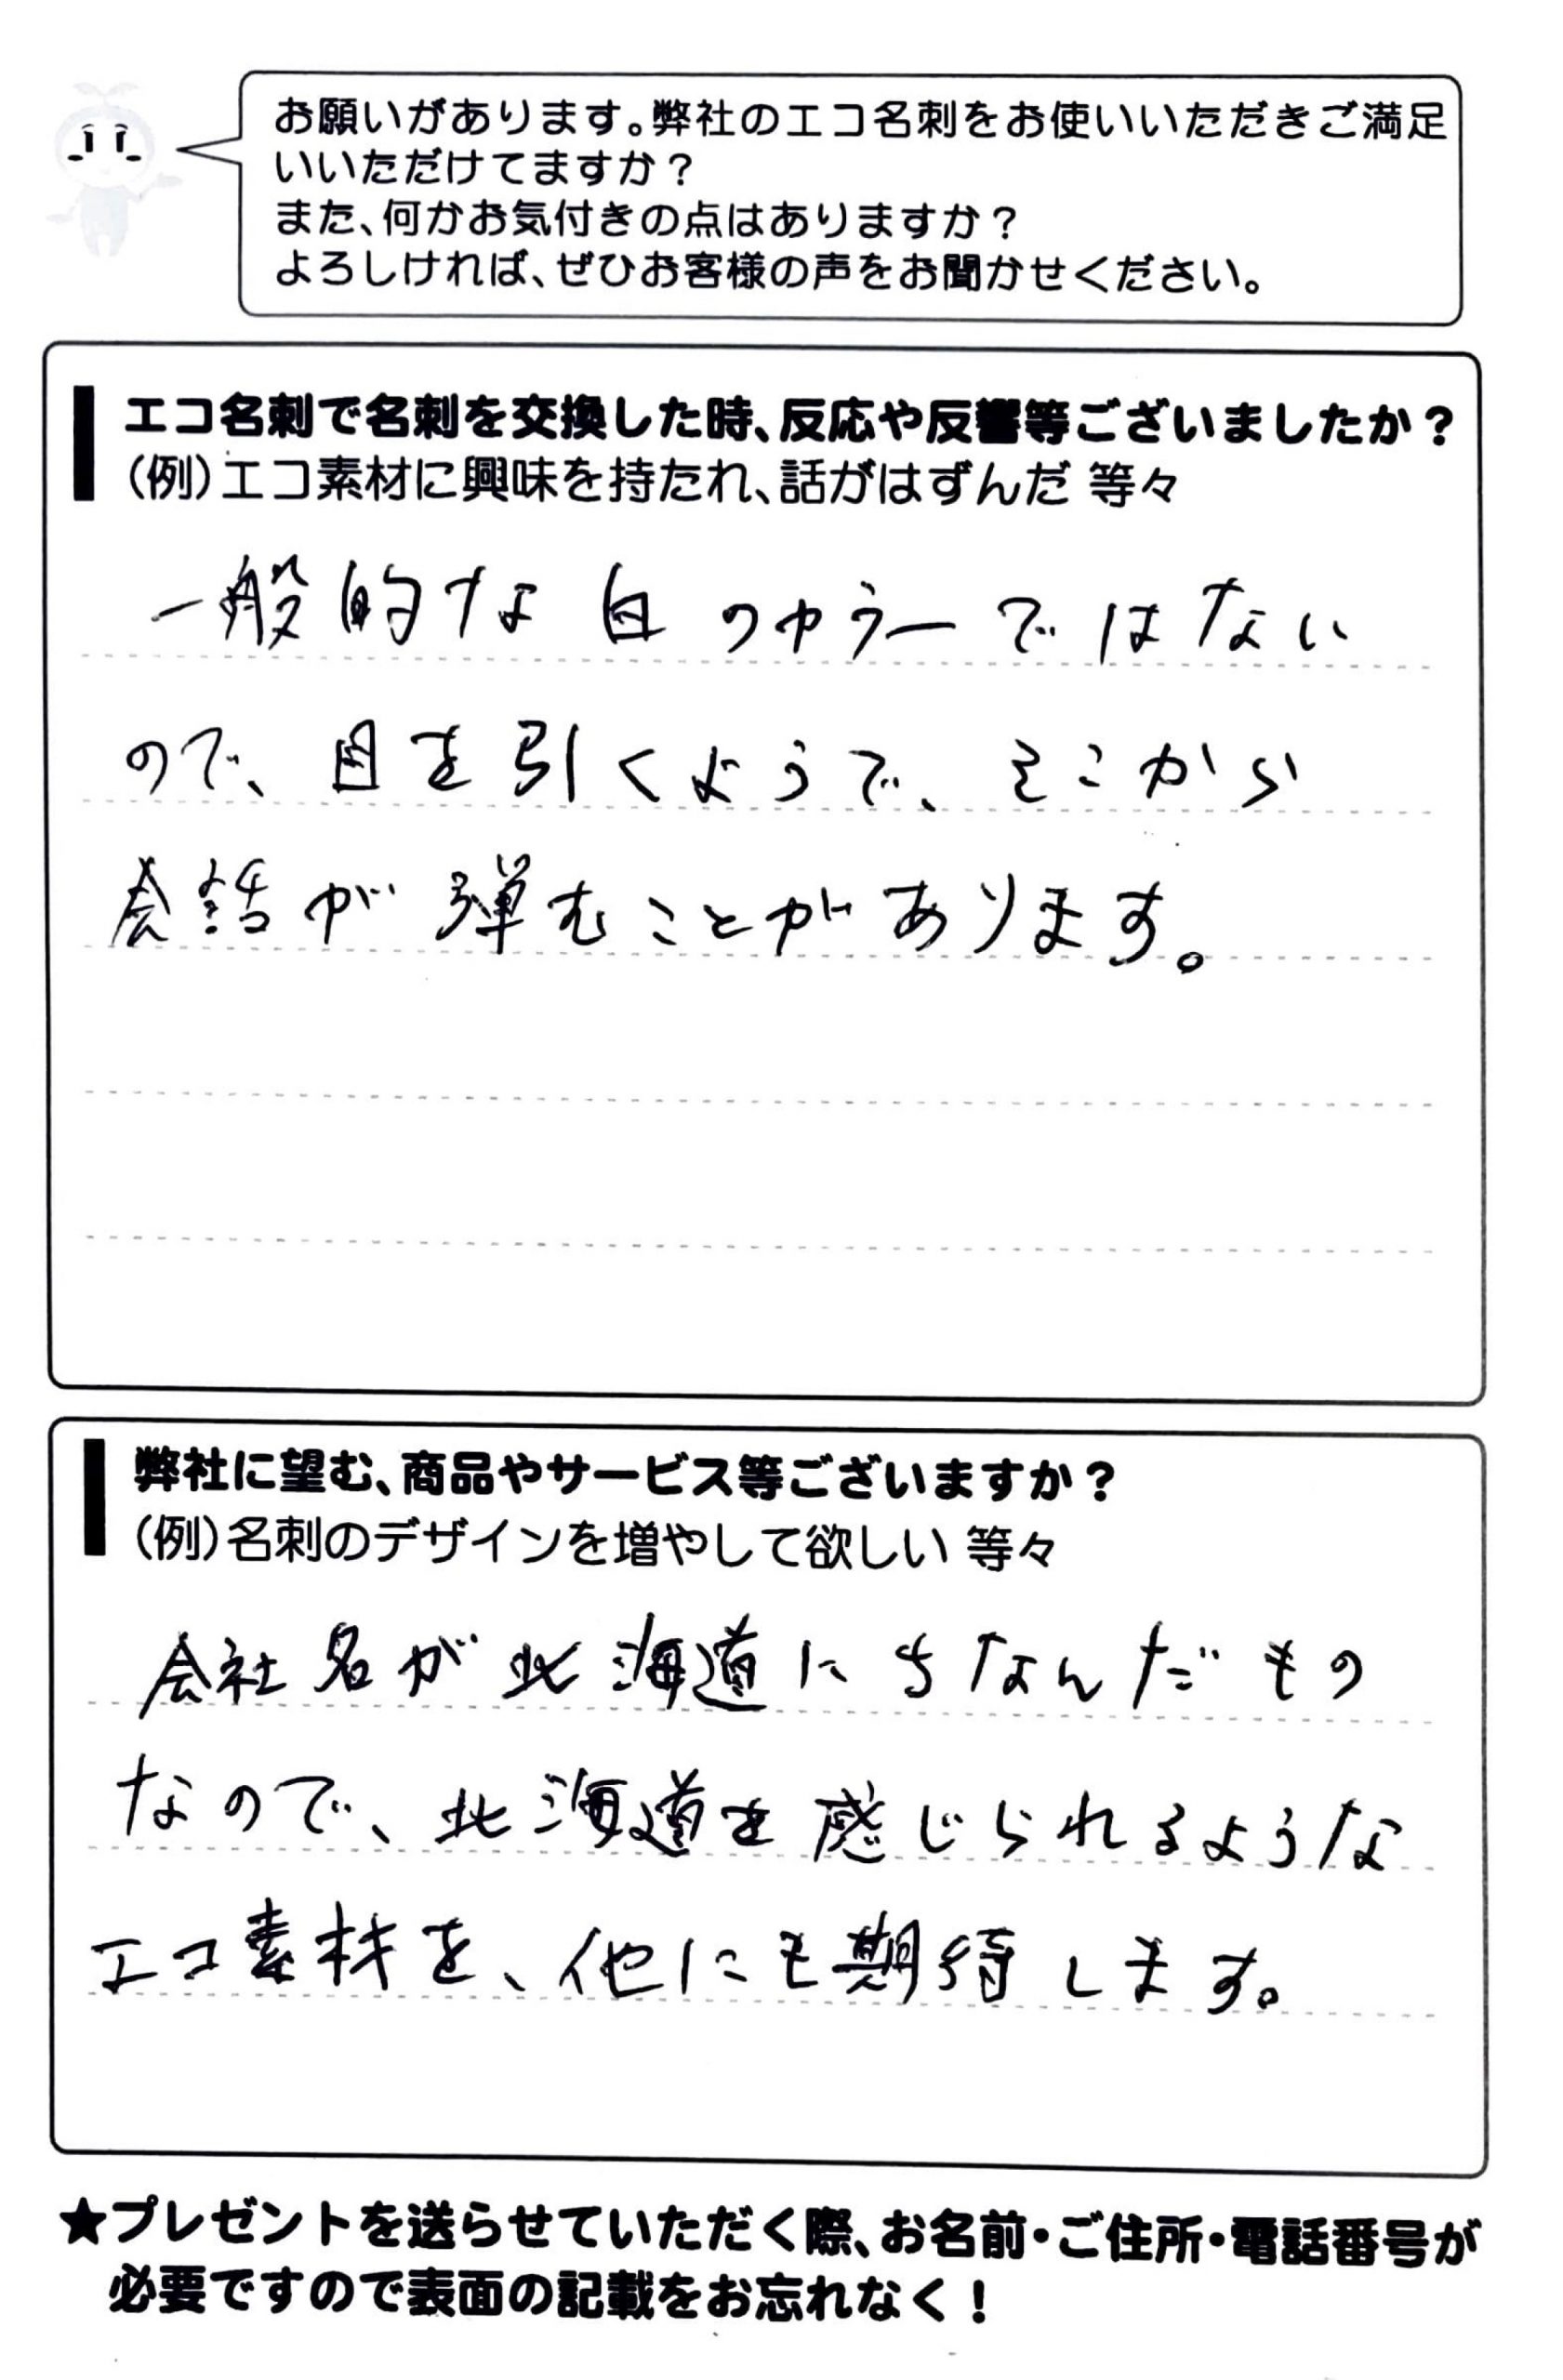 お願いがあります。弊社のエコ名刺をお使いいただきご満足
いいただけてますか？
また、何かお気付きの点はありますか？
よろしければ、ぜひお客様の声をお聞かせください。
エコ名刺で名刺を交換した時、反応や反響等ございましたか？
（例）エコ素材に興味を持たれ、話がはずんだ 等々
一般的な白のカラーではない
ので、目を引くようで、そこから
会話が弾むことがあります。
弊社に望む、商品やサービス等ございますか？
（例）名刺のデザインを増やして欲しい 等々
会社名が北海道にちなんだもの
なので、北海道を感じられるような
エコ素材を、他にも期待します。
★プレゼントを送らせていただく際、お名前・ご住所・電話番号が
必要ですので表面の記載をお忘れなく！